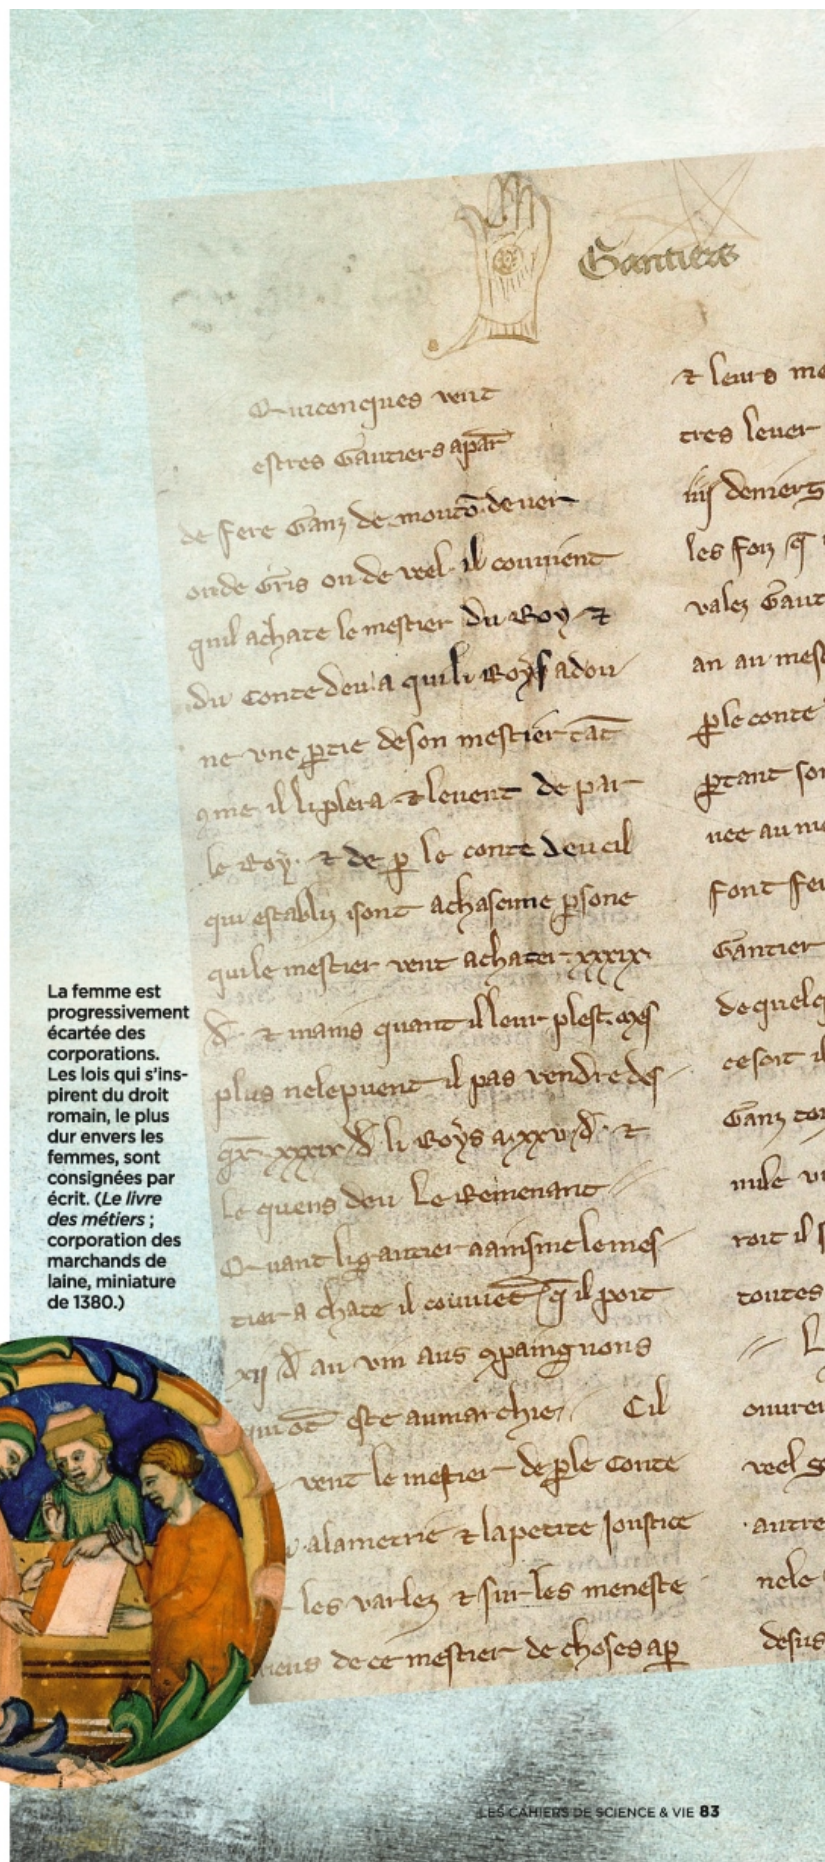 Gantiers
Quiconques veut
estres Gantiers a par
de fere Ganz de mouton de ver
ou de Gris ou de veel il convient
quil achate le mestier du Roy ⁊
du Conte deu a qui li Roys a dou
ne une ptie de son mestier tāt
9me il li plera ⁊ levent de par
le Roy. ⁊ de p le conte deu cil
qui establiz i sont a chascune psone
qui le mestier veut achater. xxxix.
d ⁊ mains quant il leur plest. mes
plus ne le puent il pas vendre des
qx xxxix d li Roys a. xxv. d. ⁊
le quens deu le Remenant
Quant li gantier a ainsinc le mes
tier achate il couviēt q il poit
xij d au vin aus 9paingnons
qui ōt este au marchie. Cil
vent le mestier de p le Conte
a la metrie ⁊ la petite Joustice
les varlez ⁊ sur les meneste
de ce mestier de choses ap
⁊ leurs
tres lever
iiij deniers
les foiz q
valez Gant
an au mes
p le conte
ptant son
vee au
font fei
Gantier
de quelq
ce soit il
Ganz
nule
roit il
toutes
ouvrer
veel
autre
nele
desus
La femme est
progressivement
écartée des
corporations.
Les lois qui s'ins-
pirent du droit
romain, le plus
dur envers les
femmes, sont
consignées par
écrit. (Le livre
des métiers ;
corporation des
marchands de
laine, miniature
de 1380.)
LES CAHIERS DE SCIENCE & VIE 83